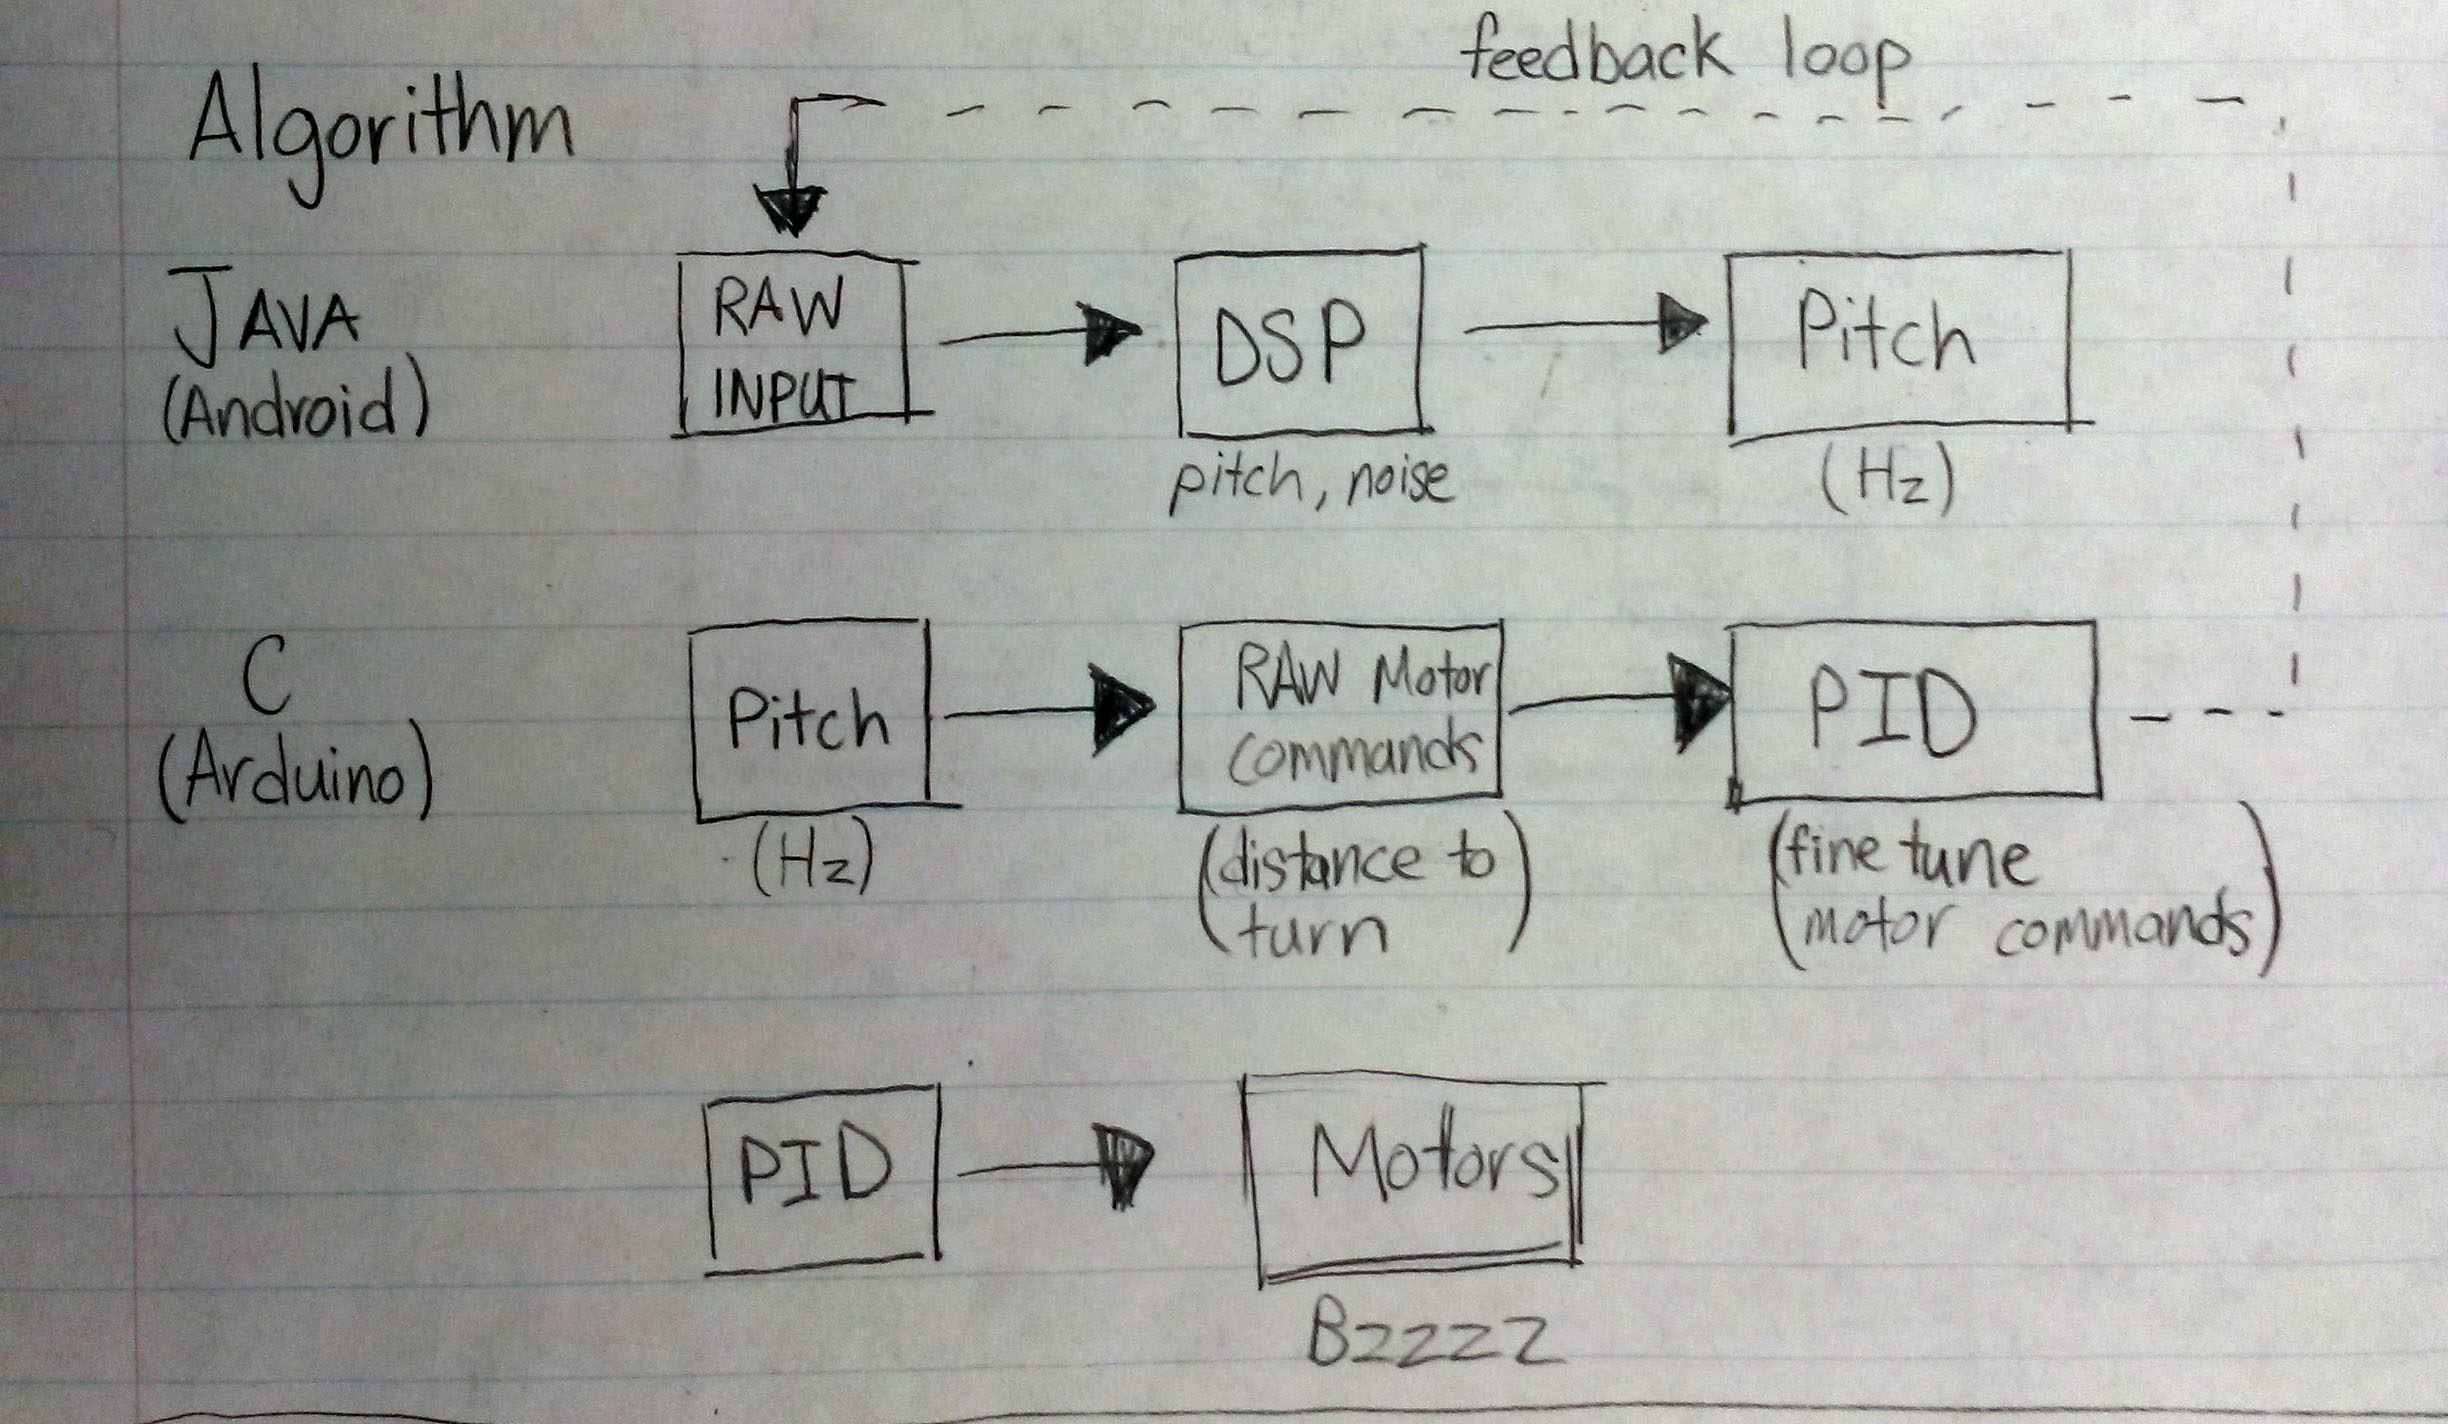 feedback loop
Algorithm
JAVA
(Android)
RAW
INPUT
DSP
pitch, noise
Pitch
(Hz)
C
(Arduino)
Pitch
(Hz)
RAW Motor
commands
(distance to
turn)
PID
(fine tune
motor commands)
PID
Motors
Bzzzz